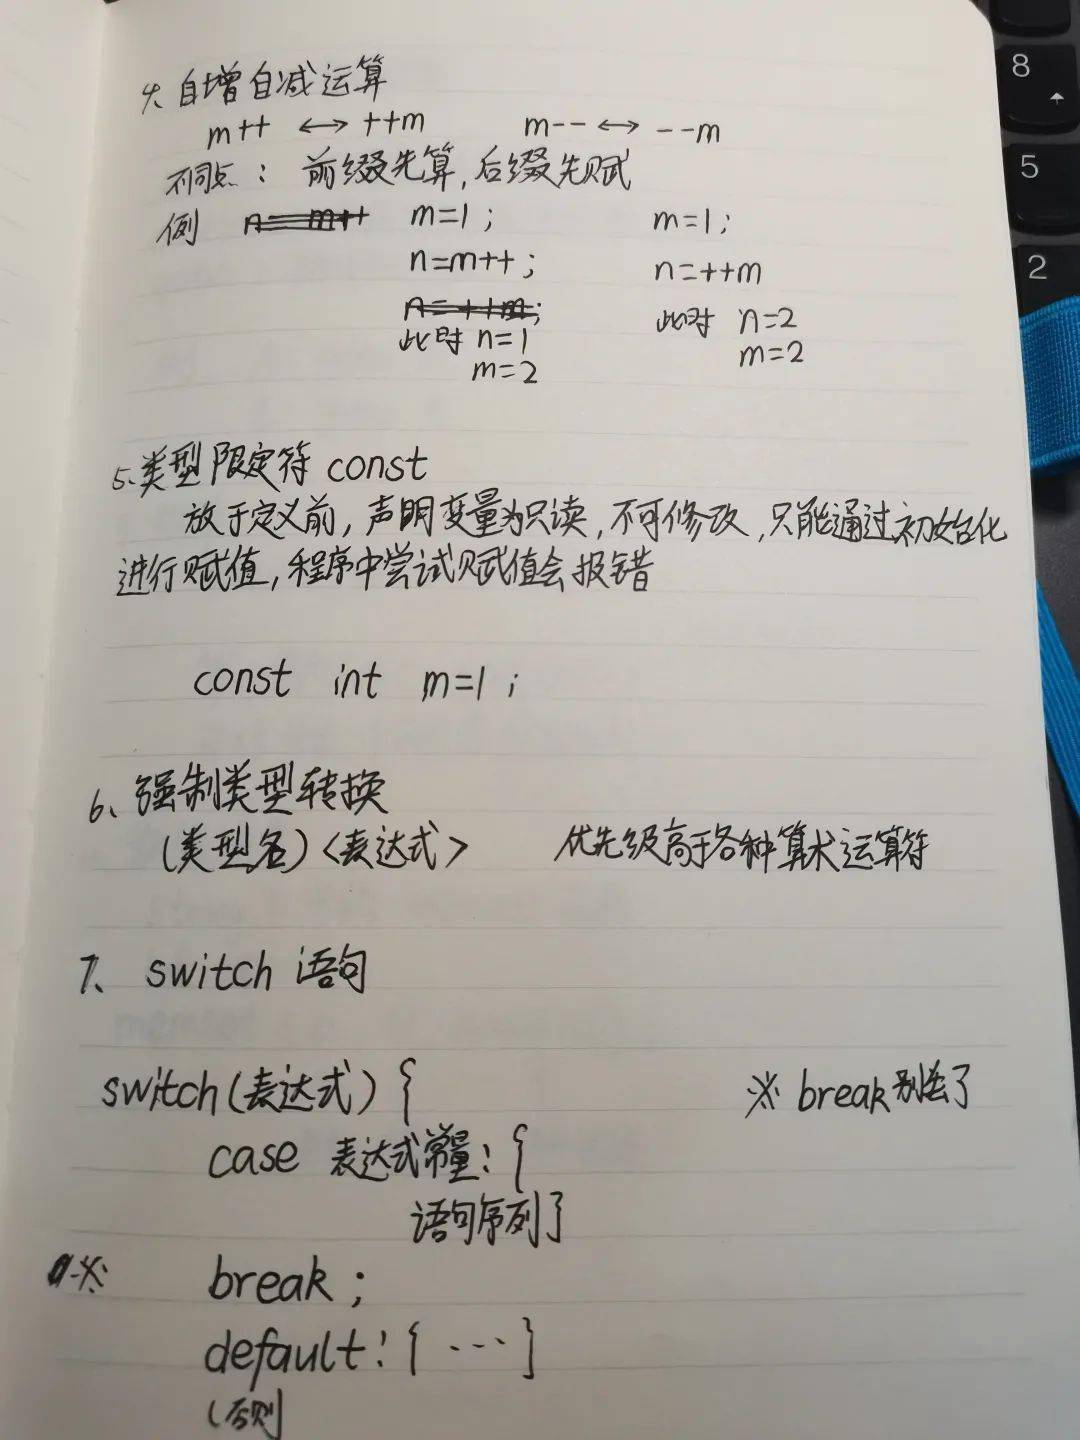 4、自增自减运算
m++ ↔ ++m    m-- ↔ --m
不同点：前缀先算，后缀先赋
例 n=m++ m=1; m=1;
n=m++; n=++m
n=++m;
此时 n=1 此时 n=2
m=2 m=2
5、类型限定符 const
放于定义前，声明变量为只读，不可修改，只能通过初始化
进行赋值，程序中尝试赋值会报错
const int m=1;
6、强制类型转换
(类型名)<表达式> 优先级高于各种算术运算符
7、switch 语句
switch(表达式) { ※ break别忘了
case 表达式常量: {
语句序列}
※ break;
default: { ··· }
(否则
8
5
2